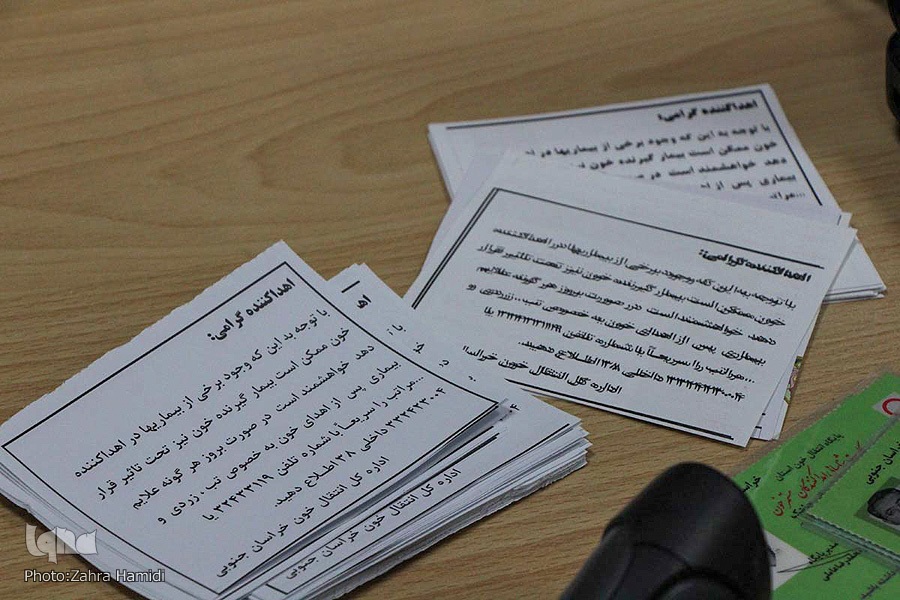 اهداکننده گرامی:
با توجه به این که وجود برخی از بیماریها در اهداکننده
خون ممکن است بیمار گیرنده خون نیز تحت تاثیر قرار
دهد خواهشمند است در صورت بروز هر گونه علایم
بیماری پس از اهدای خون به خصوص تب ، زردی و
...مراتب را سریعاً با شماره تلفن ۳۲۴۳۳۱۱۹ یا
۳۲۴۳۳۰۰۴ داخلی ۱۳۸ اطلاع دهید.
اداره کل انتقال خون خراسان جنوبی
اداره کل انتقال خون خراسان جنوبی
اهداکننده گرامی:
با توجه به این که وجود برخی از بیماریها در اهداکننده
خون ممکن است بیمار گیرنده خون نیز تحت تاثیر قرار
دهد خواهشمند است در صورت بروز هر گونه علایم
بیماری پس از اهدای خون به خصوص تب ، زردی و
...مراتب را سریعاً با شماره تلفن
داخلی ۱۳۸ اطلاع دهید.
اداره کل انتقال خون
اهداکننده گرامی:
با توجه به این که وجود برخی از بیماریها در
خون ممکن است بیمار گیرنده خون
دهد خواهشمند است در
بیماری پس از
پایگاه انتقال خون استان
خراسان جنوبی
Photo:Zahra Hamidi